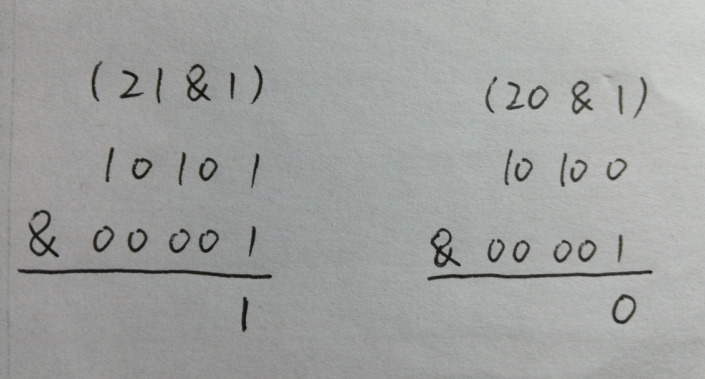 (21 & 1)
10101
& 00001
1
(20 & 1)
10100
& 00001
0